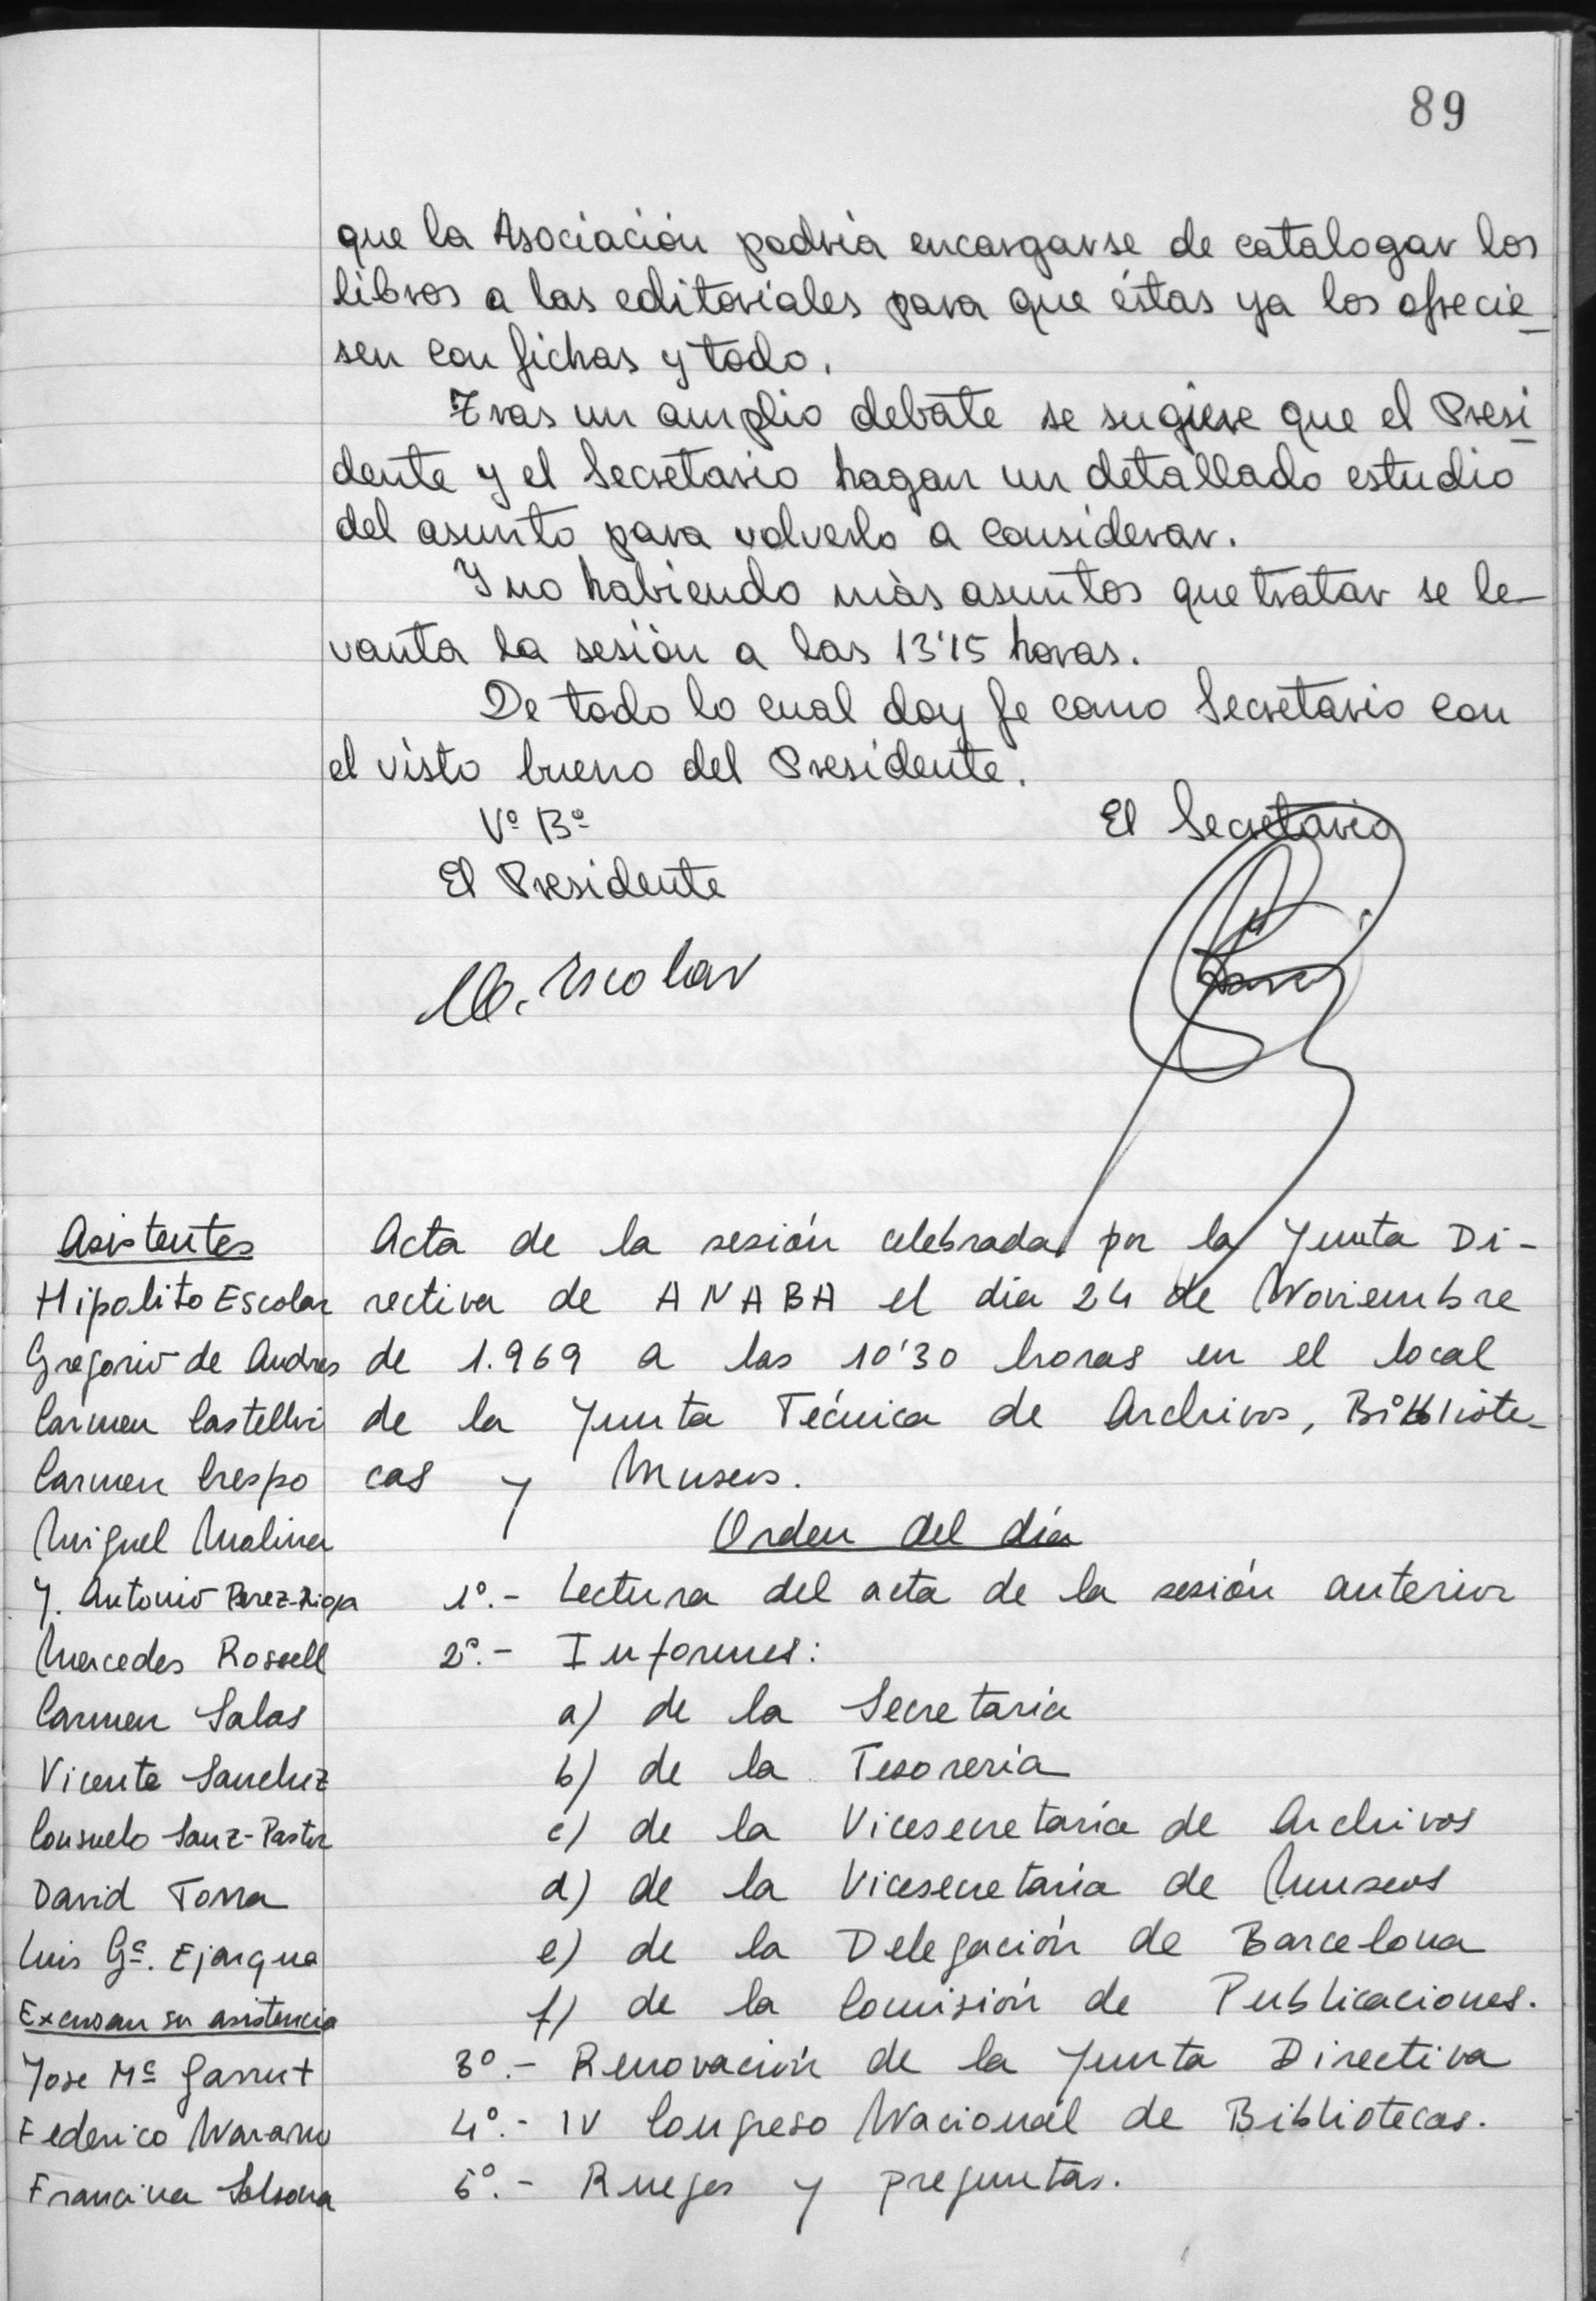 89
que la Asociación podría encargarse de catalogar los
libros a las editoriales para que éstas ya los ofrecie-
sen con fichas y todo.
Tras un amplio debate se sugiere que el Presi-
dente y el Secretario hagan un detallado estudio
del asunto para volverlo a considerar.
Y no habiendo más asuntos que tratar se le-
vanta la sesión a las 13'15 horas.
De todo lo cual doy fe como Secretario con
el visto bueno del Presidente.
Vº Bº
El Secretario
El Presidente
H. Escolar
Asistentes
Hipolito Escolar
Gregorio de Andres
Carmen Castellvi
Carmen Crespo
Miguel Molina
J. Antonio Perez-Rioja
Mercedes Rossell
Carmen Salas
Vicente Sanchiz
Consuelo Sanz-Pastor
David Torra
Luis Gª. Ejarque
Excusan su asistencia
Jose Mª Garrut
Federico Navarro
Francina Solsona
Acta de la sesión celebrada por la Junta Di-
rectiva de ANABA el día 24 de Noviembre
de 1.969 a las 10'30 horas en el local
de la Junta Técnica de Archivos, Bibliote-
cas y Museos.
Orden del día
1º.- Lectura del acta de la sesión anterior
2º.- Informes:
a) de la Secretaría
b) de la Tesorería
c) de la Vicesecretaría de Archivos
d) de la Vicesecretaría de Museos
e) de la Delegación de Barcelona
f) de la Comisión de Publicaciones.
3º.- Renovación de la Junta Directiva
4º.- IV Congreso Nacional de Bibliotecas.
5º.- Ruegos y preguntas.